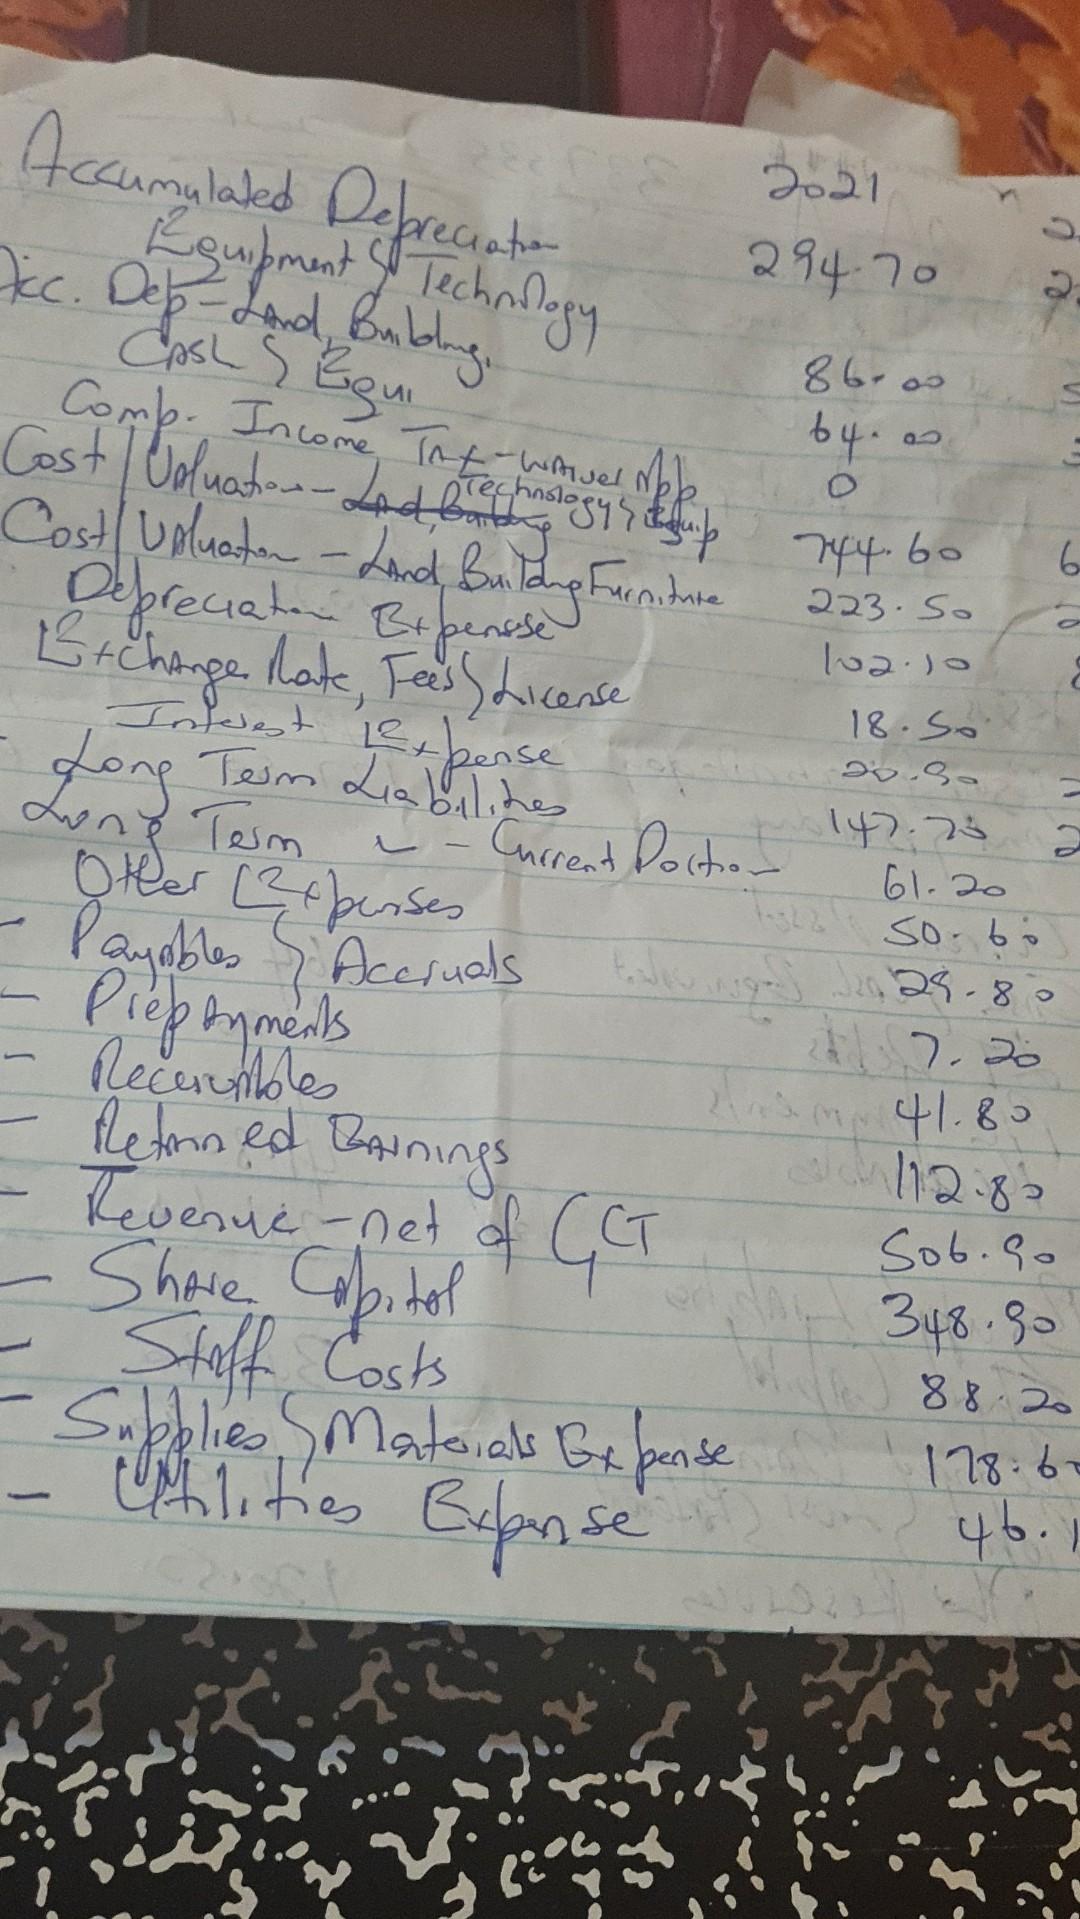 Accumulated Depreciation 2021
Equipment & Technology 294.70
Acc. Dep - Land, Building, 86.00
Cash & Equi 64.00
Comp. Income Tax - Waiver App 0
Cost/Valuation - Land, Building Technology & Equip 744.60
Cost/Valuation - Land, Building Furniture 223.50
Depreciation Expense 102.10
Exchange Rate, Fees & License 18.50
Interest Expense 20.90
Long Term Liabilities 147.70
Long Term " - Current Portion 61.20
Other Expenses 50.60
- Payables & Accruals 29.80
- Prepayments 7.20
- Receivables 41.80
- Retained Earnings 112.80
- Revenue - net of GCT 506.90
- Share Capital 348.90
- Staff Costs 88.20
- Supplies & Materials Expense 178.6
- Utilities Expense 46.1